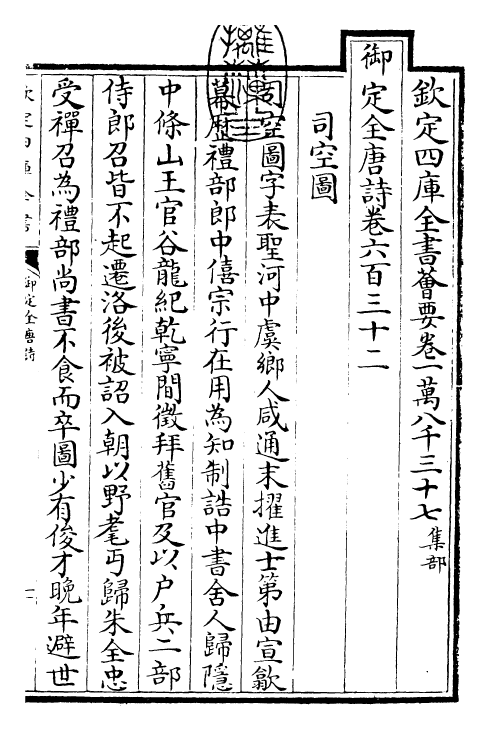 欽定四庫全書薈要卷一萬八千三十七集部
御定全唐詩卷六百三十二
司空圖
司空圖字表聖河中虞鄉人咸通末擢進士第由宣歙
幕歷禮部郎中僖宗行在用為知制誥中書舍人歸隱
中條山王官谷龍紀乾寧間徵拜舊官及以户兵二部
侍郎召皆不起遷洛後被詔入朝以野耄丐歸朱全忠
受禪召為禮部尚書不食而卒圖少有俊才晚年避世
御定全唐詩